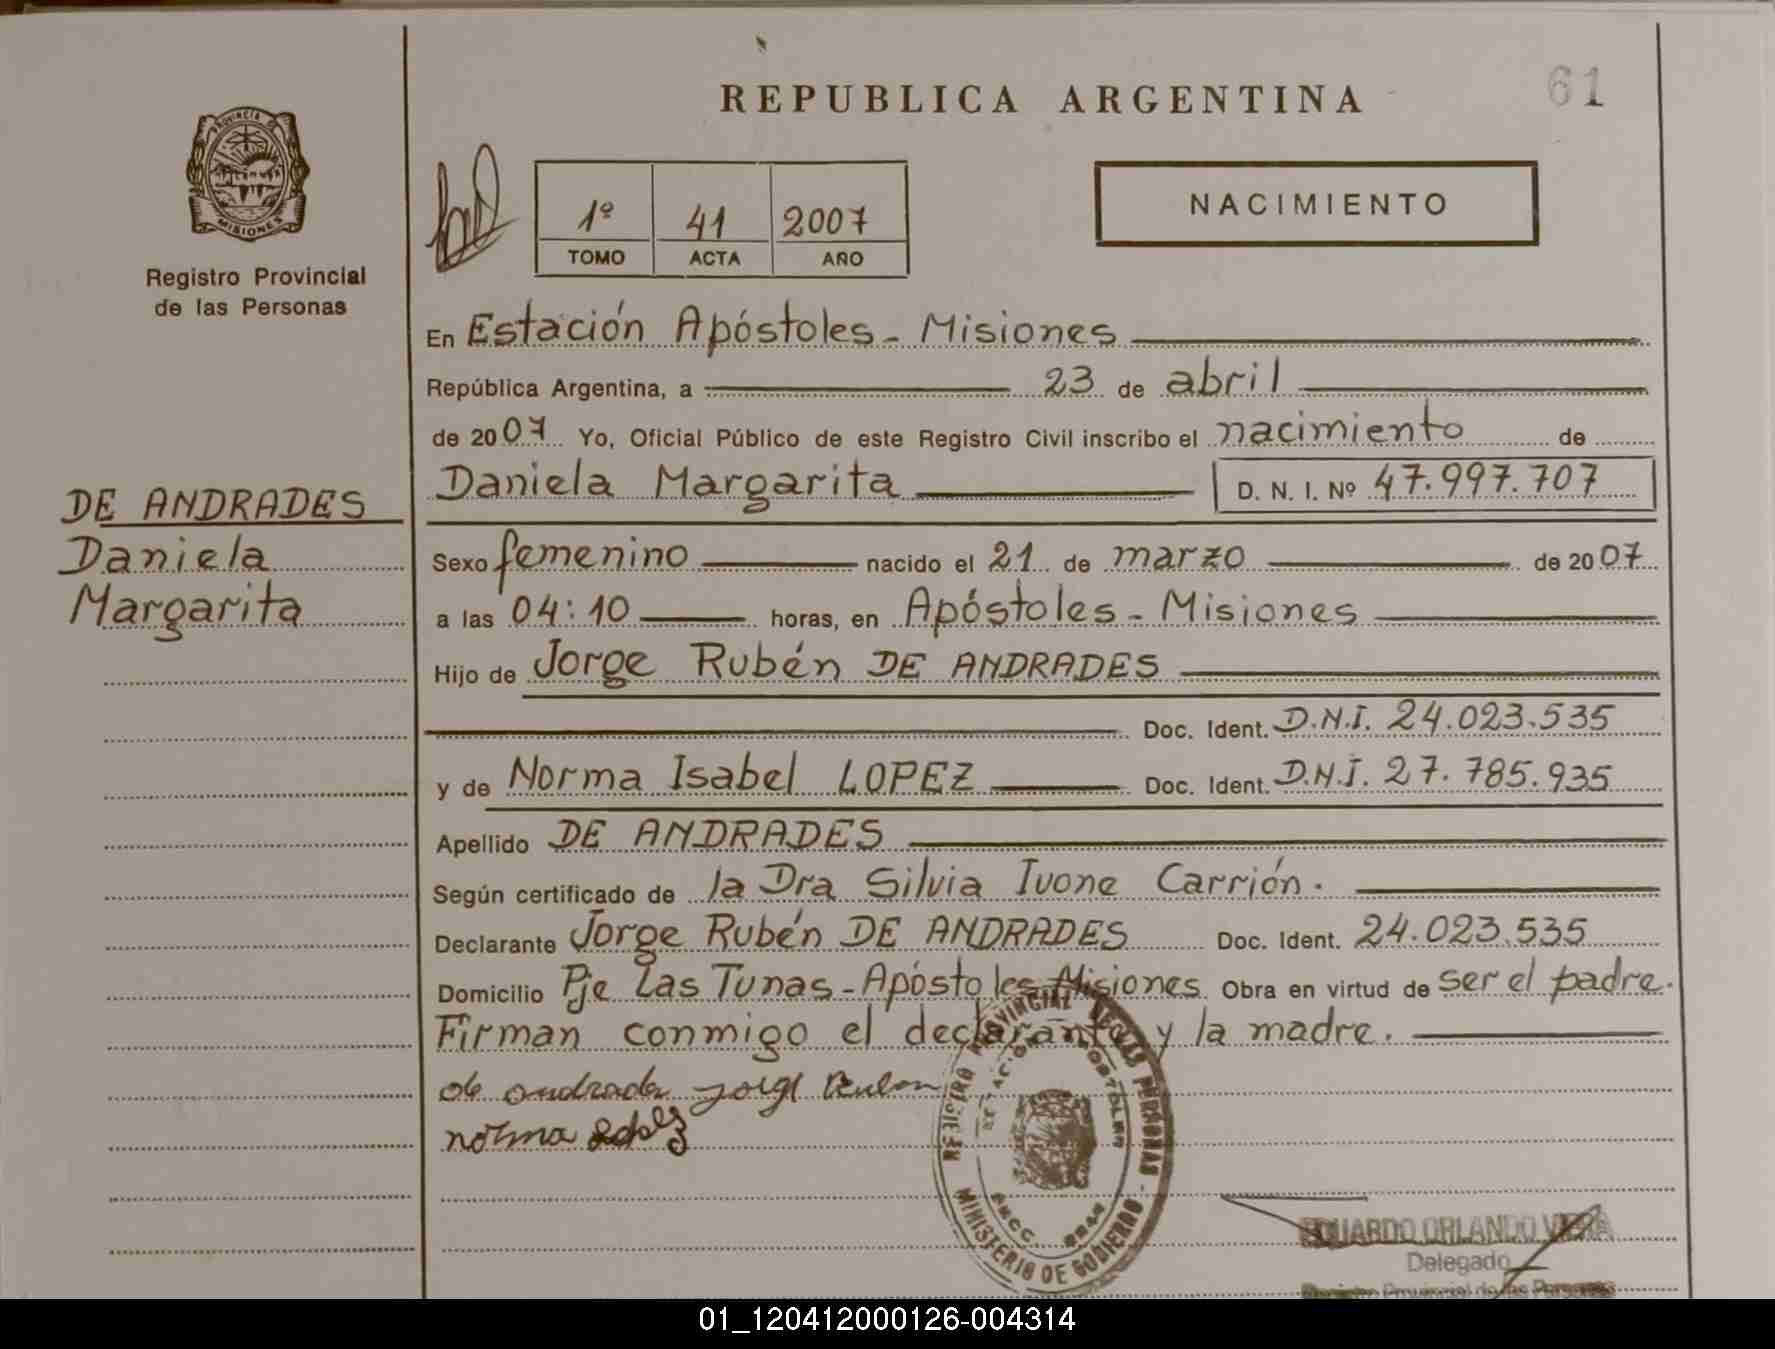 REPUBLICA ARGENTINA
61
PROVINCIA DE
MISIONES
Registro Provincial
de las Personas
1º 41 2007
TOMO ACTA AÑO
NACIMIENTO
En Estación Apóstoles - Misiones
República Argentina, a 23 de abril
de 2007 Yo, Oficial Público de este Registro Civil inscribo el nacimiento de
Daniela Margarita D. N. I. Nº 47.997.707
DE ANDRADES
Daniela
Margarita
Sexo femenino nacido el 21 de marzo de 2007
a las 04:10 horas, en Apóstoles - Misiones
Hijo de Jorge Rubén DE ANDRADES
Doc. Ident. D.N.I. 24.023.535
y de Norma Isabel LOPEZ Doc. Ident. D.N.I. 27.785.935
Apellido DE ANDRADES
Según certificado de la Dra Silvia Ivone Carrión.
Declarante Jorge Rubén DE ANDRADES Doc. Ident. 24.023.535
Domicilio Pje Las Tunas - Apóstoles Misiones Obra en virtud de ser el padre.
Firman conmigo el declarante y la madre.
de andrade jorge Ruben
norma lopez
REGISTRO PROVINCIAL DE LAS PERSONAS -
MINISTERIO DE GOBIERNO
ESTACION APOSTOLES
EDUARDO ORLANDO VIERA
Delegado
Registro Provincial de las Personas
01_120412000126-004314